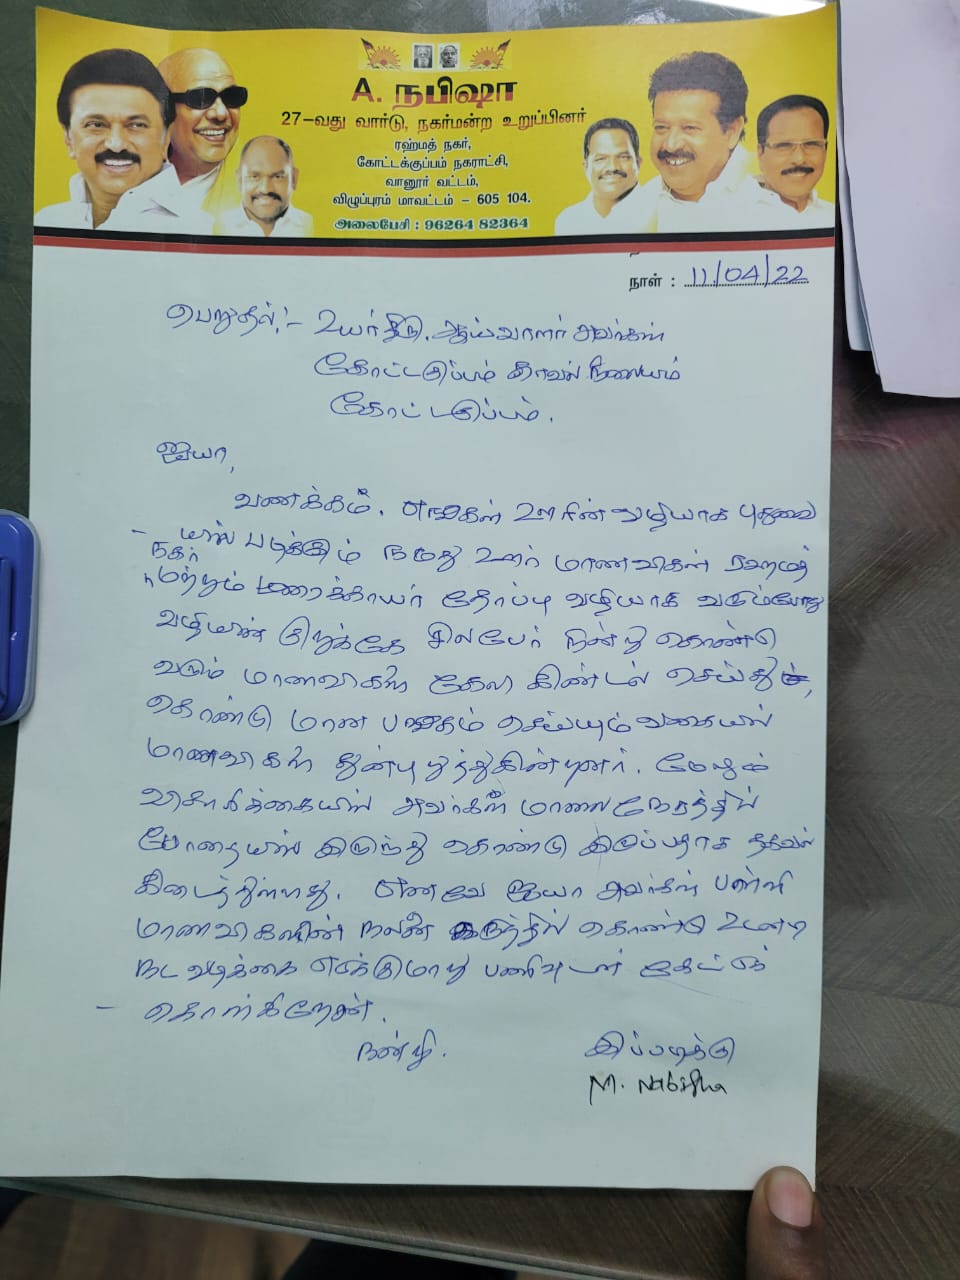 A. நபிஷா
27-வது வார்டு, நகர்மன்ற உறுப்பினர்
ரஹ்மத் நகர்,
கோட்டக்குப்பம் நகராட்சி,
வானூர் வட்டம்,
விழுப்புரம் மாவட்டம் - 605 104.
அலைபேசி : 96264 82364
நாள் : 11/04/22
பெறுதல்:- உயர்திரு. ஆய்வாளர் அவர்கள்
கோட்டகுப்பம் காவல் நிலையம்
கோட்டகுப்பம்.
ஐயா,
வணக்கம். எங்கள் ஊரின் வழியாக புதுவை
யில் படிக்கும் நமது ஊர் மாணவிகள் ரஹமத்
நகர்
மற்றும் மரைக்காயர் தோப்பு வழியாக வரும்போது
வழியின் குறுக்கே சிலபேர் நின்று கொண்டு
வரும் மாணவிகளை கேலி கிண்டல் செய்து
கொண்டு மான பங்கம் செய்யும் வகையில்
மாணவிகளை துன்புறுத்துகின்றனர். மேலும்
விசாரிக்கையில் அவர்கள் மாலை நேரத்தில்
போதையில் இருந்து கொண்டு இருப்பதாக தகவல்
கிடைத்துள்ளது. எனவே ஐயா அவர்கள் பள்ளி
மாணவிகளின் நலன் கருத்தில் கொண்டு உடனடி
நடவடிக்கை எடுக்குமாறு பணிவுடன் கேட்டுக்
கொள்கிறேன்.
நன்றி.
இப்படிக்கு
M. Nabisha